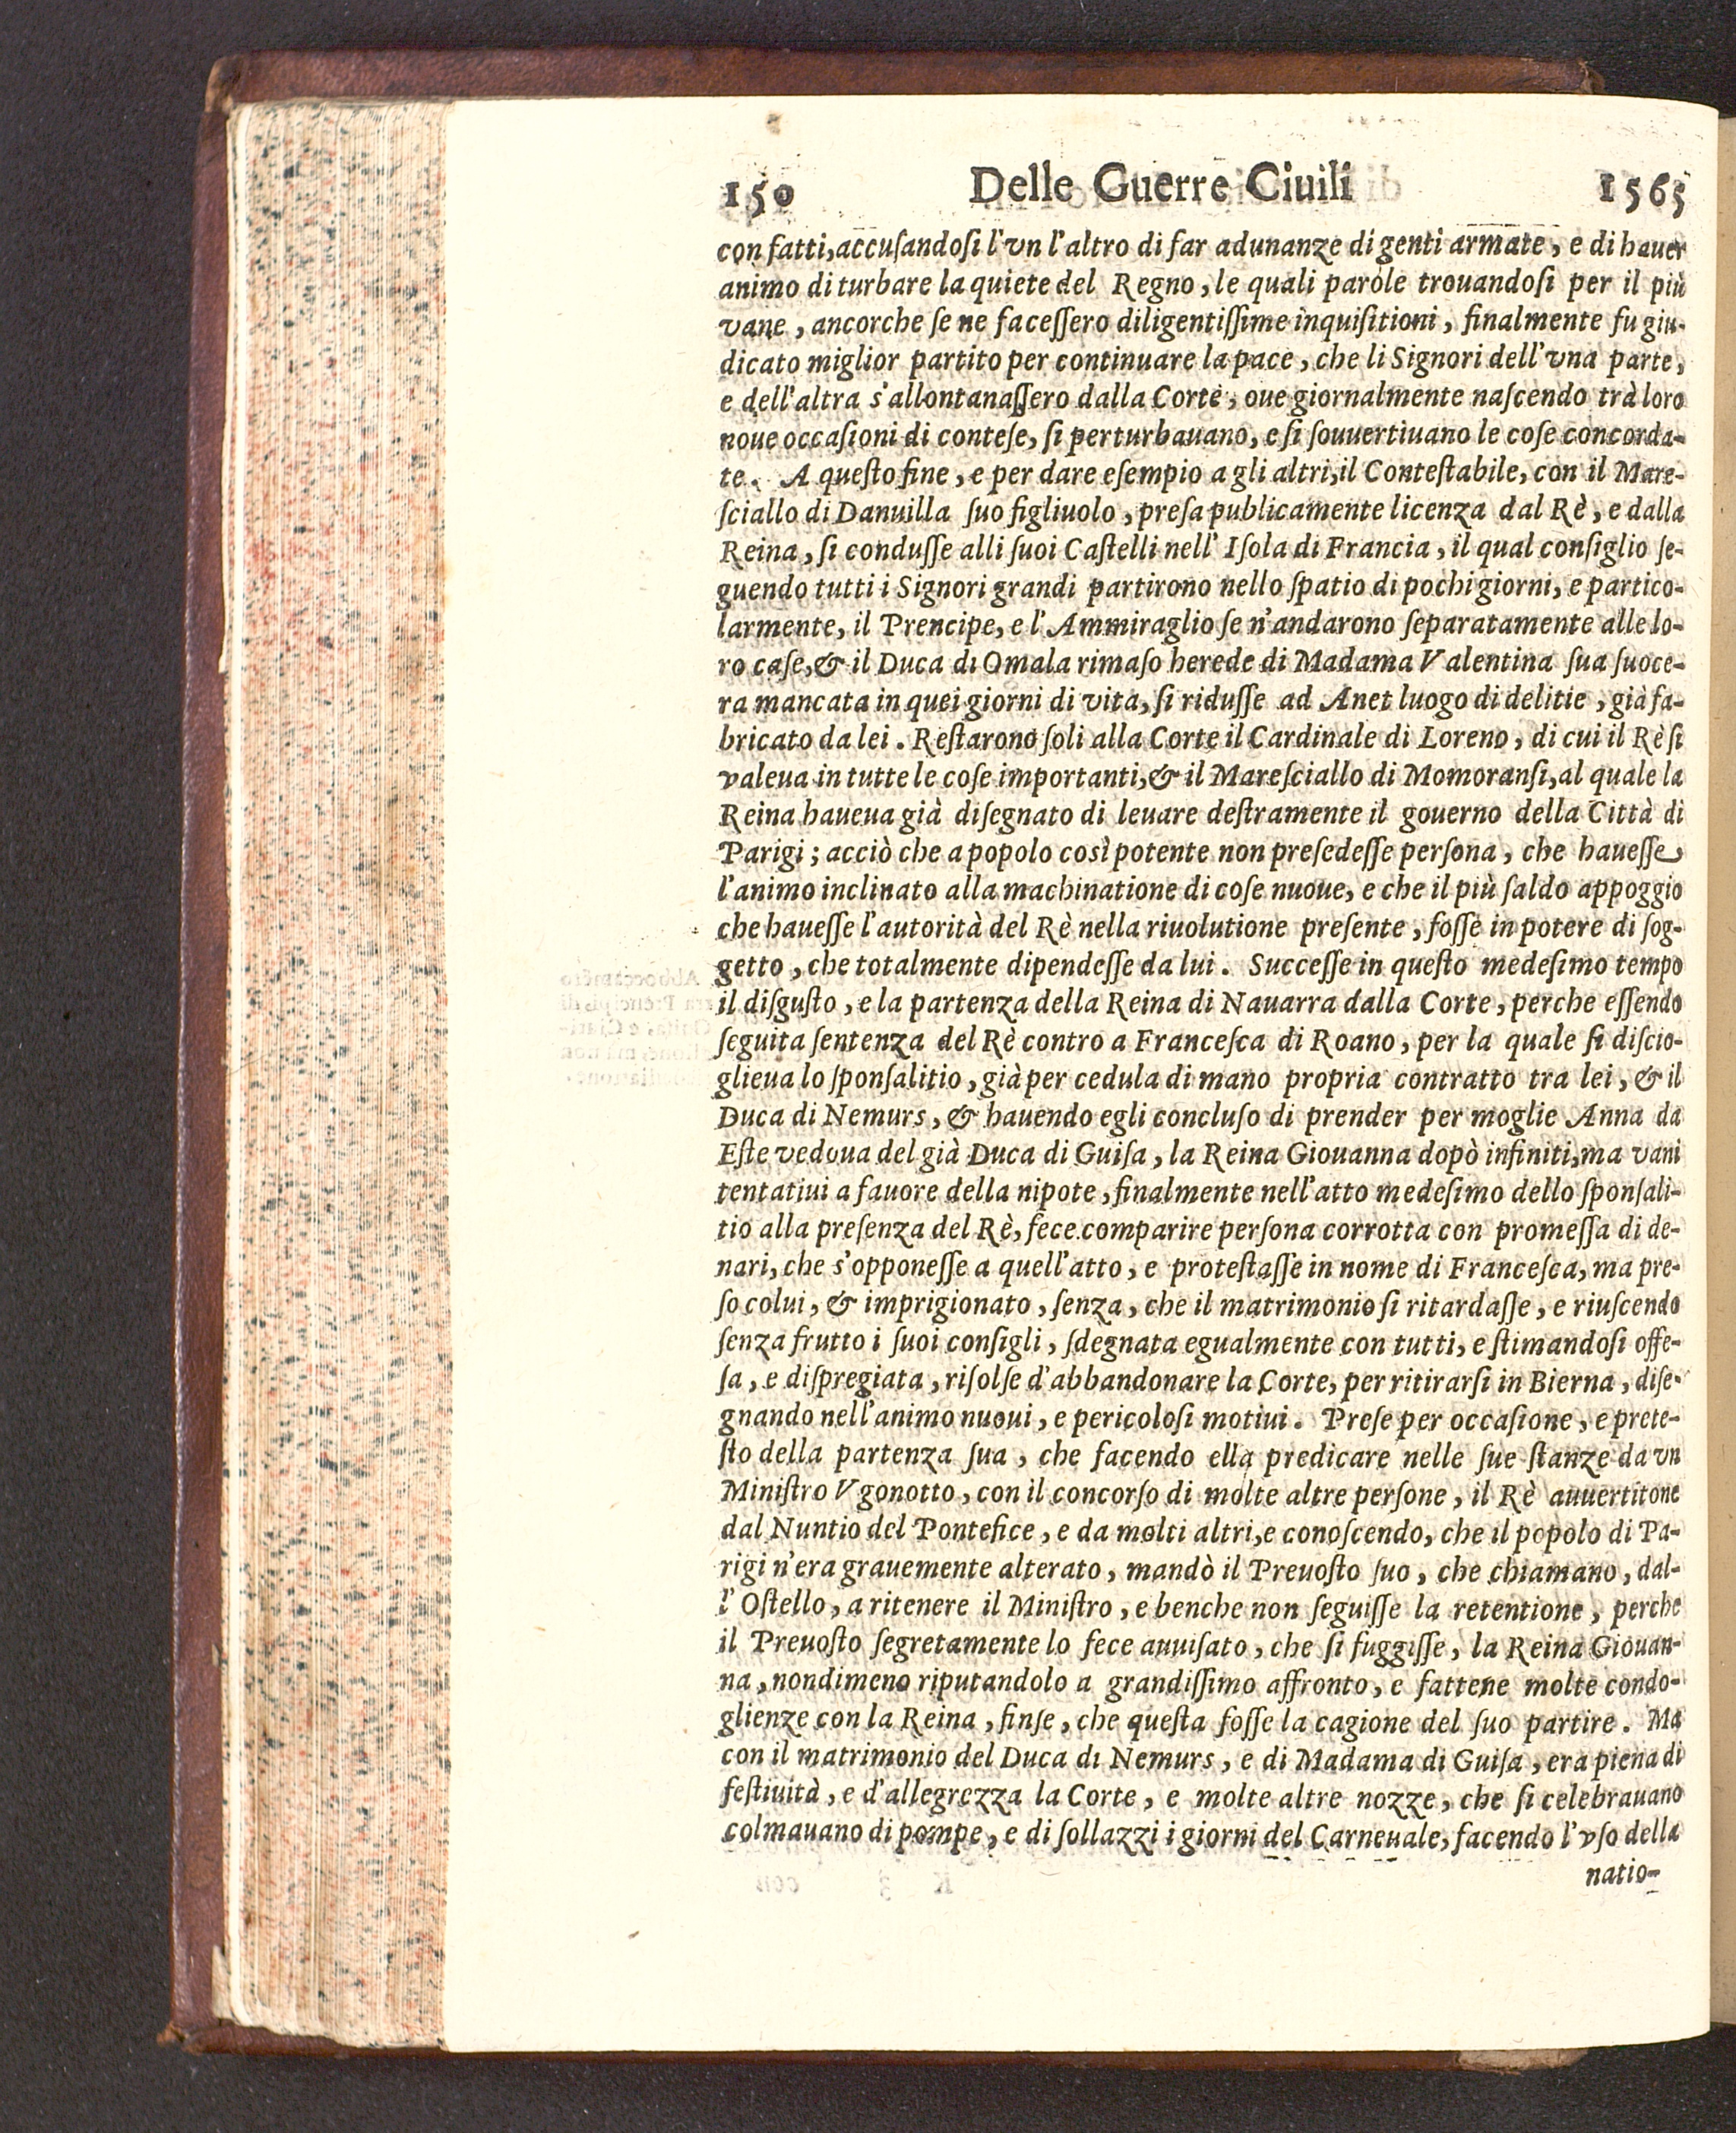 150 Delle Guerre Ciuili 1565
con fatti, accuſandoſi l'vn l'altro di far adunanze di genti armate, e di hauer
animo di turbare la quiete del Regno, le quali paróle trouandoſi per il più
vane, ancorche ſe ne faceſſero diligentiſſime inquiſitioni, finalmente fu giu-
dicato miglior partito per continuare la pace, che li Signori dell'vna parte,
e dell'altra s'allontanaſſero dalla Corte, oue giornalmente naſcendo trà loro
noue occaſioni di conteſe, ſi perturbauano, e ſi ſouuertiuano le coſe concorda-
te. A queſto fine, e per dare eſempio a gli altri, il Conteſtabile, con il Mare-
ſciallo di Danuilla ſuo figliuolo, preſa publicamente licenza dal Rè, e dalla
Reina, ſi conduſſe alli ſuoi Caſtelli nell' Iſola di Francia, il qual conſiglio ſe-
guendo tutti i Signori grandi partirono nello ſpatio di pochi giorni, e partico-
larmente, il Prencipe, e l'Ammiraglio ſe n'andarono ſeparatamente alle lo-
ro caſe, & il Duca di Omala rimaſo herede di Madama Valentina ſua ſuoce-
ra mancata in quei giorni di vita, ſi riduſſe ad Anet luogo di delitie, già fa-
bricato da lei. Reſtarono ſoli alla Corte il Cardinale di Loreno, di cui il Rè ſi
valeua in tutte le coſe importanti, & il Mareſciallo di Momoranſi, al quale la
Reina haueua già diſegnato di leuare deſtramente il gouerno della Città di
Parigi; acciò che a popolo così potente non preſedeſſe perſona, che haueſſe
l'animo inclinato alla machinatione di coſe nuoue, e che il più ſaldo appoggio
che haueſſe l'autorità del Rè nella riuolutione preſente, foſſe in potere di ſog-
getto, che totalmente dipendeſſe da lui. Succeſſe in queſto medeſimo tempo
il diſguſto, e la partenza della Reina di Nauarra dalla Corte, perche eſſendo
ſeguita ſentenza del Rè contro a Franceſca di Roano, per la quale ſi diſcio-
glieua lo ſponſalitio, già per cedula di mano propria contratto tra lei, & il
Duca di Nemurs, & hauendo egli concluſo di prender per moglie Anna da
Eſte vedoua del già Duca di Guiſa, la Reina Giouanna dopò infiniti, ma vani
tentatiui a fauore della nipote, finalmente nell'atto medeſimo dello ſponſali-
tio alla preſenza del Rè, fece comparire perſona corrotta con promeſſa di de-
nari, che s'opponeſſe a quell'atto, e proteſtaſſe in nome di Franceſca, ma pre-
ſo colui, & imprigionato, ſenza, che il matrimonio ſi ritardaſſe, e riuſcendo
ſenza frutto i ſuoi conſigli, ſdegnata egualmente con tutti, e ſtimandoſi offe-
ſa, e diſpregiata, riſolſe d'abbandonare la Corte, per ritirarſi in Bierna, diſe-
gnando nell'animo nuoui, e pericoloſi motiui. Preſe per occaſione, e prete-
ſto della partenza ſua, che facendo ella predicare nelle ſue ſtanze da vn
Miniſtro Vgonotto, con il concorſo di molte altre perſone, il Rè auuertitone
dal Nuntio del Pontefice, e da molti altri, e conoſcendo, che il popolo di Pa-
rigi n'era grauemente alterato, mandò il Preuoſto ſuo, che chiamano, dal-
l'Oſtello, a ritenere il Miniſtro, e benche non ſeguiſſe la retentione, perche
il Preuoſto ſegretamente lo fece auuiſato, che ſi fuggiſſe, la Reina Giouan-
na, nondimeno riputandolo a grandiſſimo affronto, e fattene molte condo-
glienze con la Reina, finſe, che queſta foſſe la cagione del ſuo partire. Ma
con il matrimonio del Duca di Nemurs, e di Madama di Guiſa, era piena di
feſtiuità, e d'allegrezza la Corte, e molte altre nozze, che ſi celebrauano
colmauano di pompe, e di ſollazzi i giorni del Carneuale, facendo l'vſo della
natio-